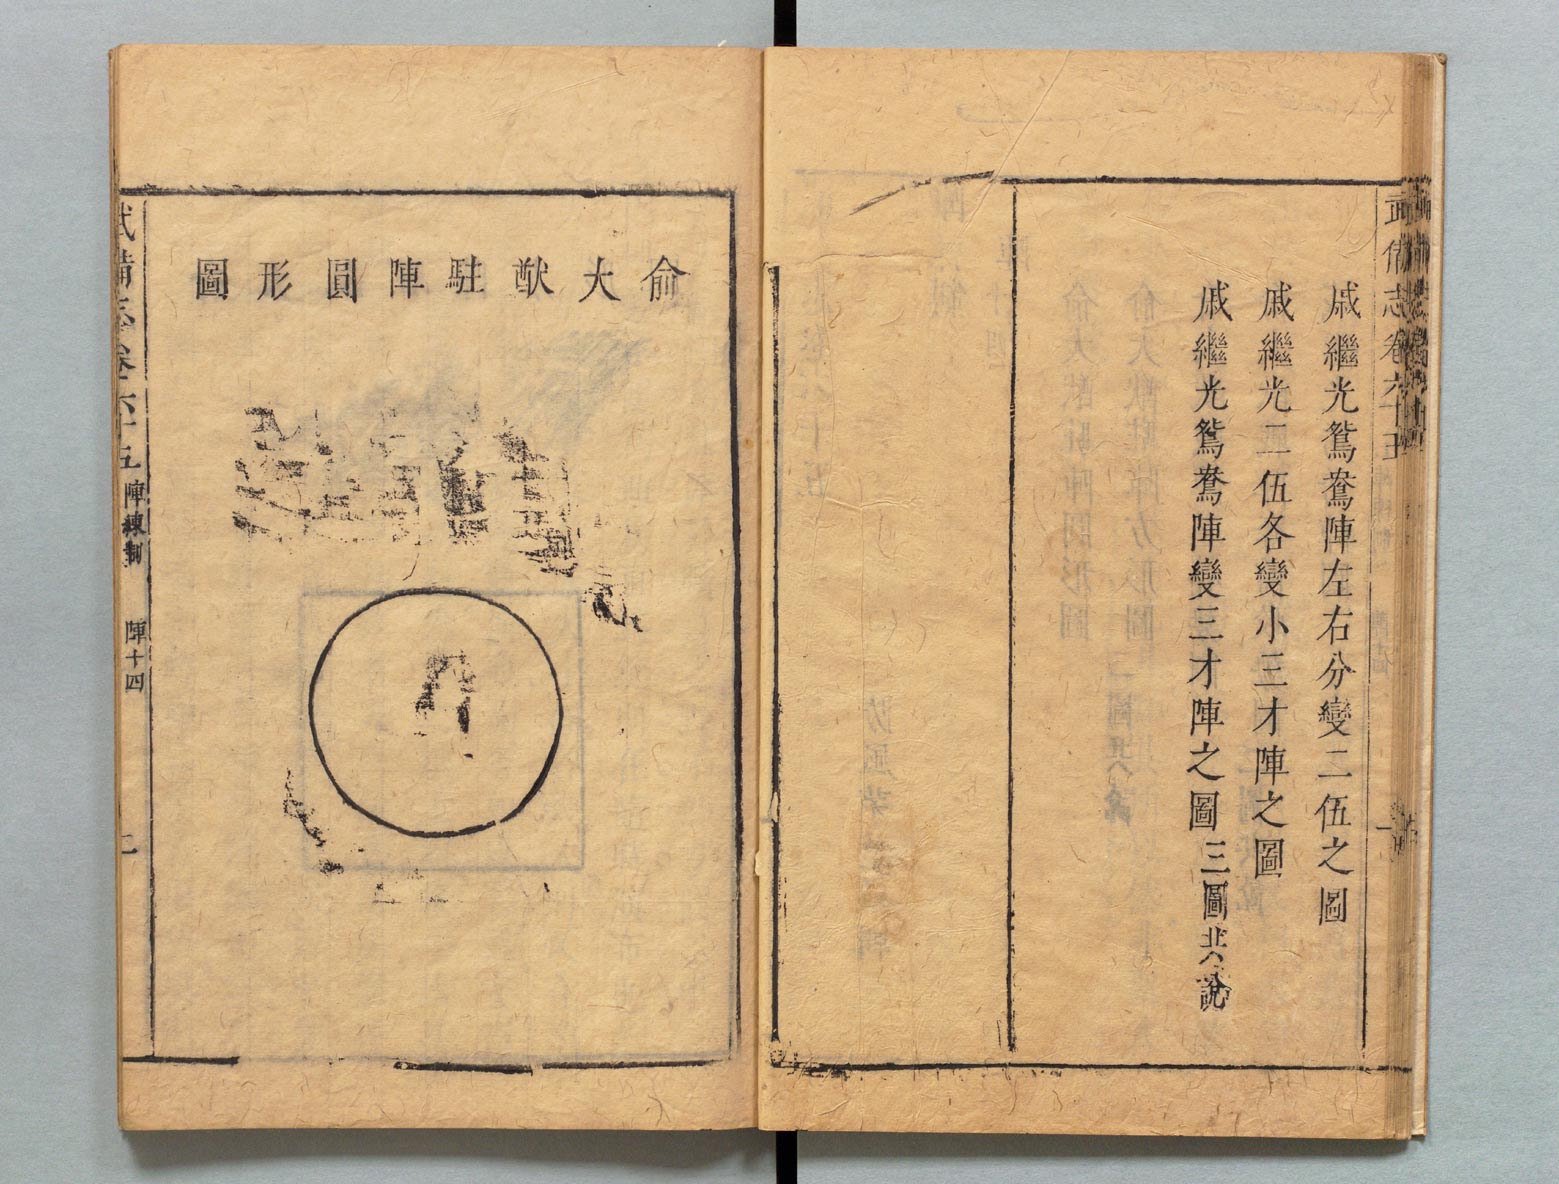 武備志卷六十五
戚繼光鴛鴦陣左右分變二伍之圖
戚繼光二伍各變小三才陣之圖
戚繼光鴛鴦陣變三才陣之圖 三圖共說
俞大猷駐陣圓形圖
武備志卷六十五 陣練制 陣十四 二